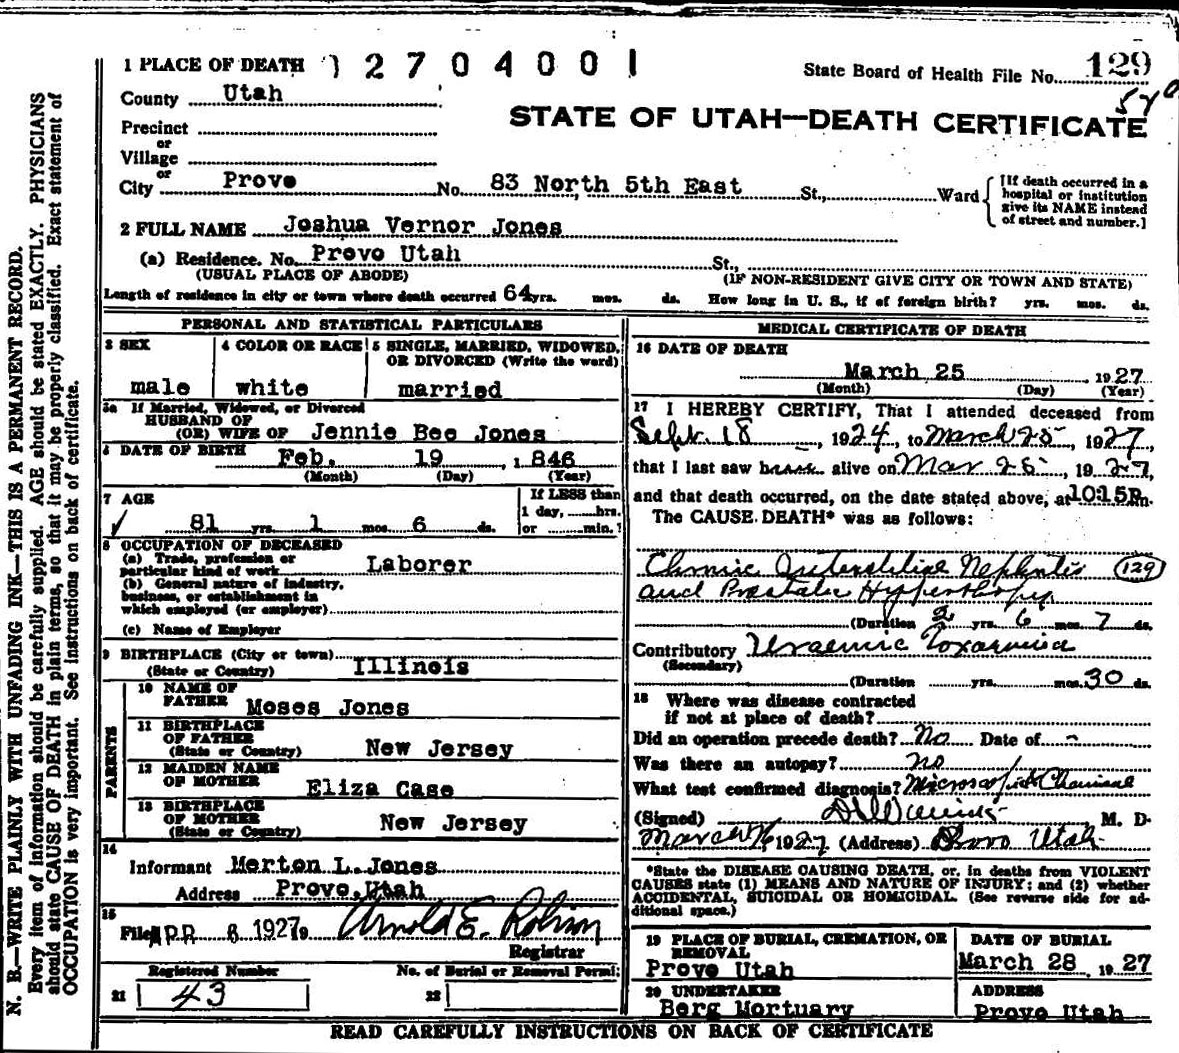 1 PLACE OF DEATH 12704001
State Board of Health File No. 129
County Utah
STATE OF UTAH—DEATH CERTIFICATE
Precinct
or
Village
or
City Provo No. 83 North 5th East St., Ward
[If death occurred in a
hospital or institution
give its NAME instead
of street and number.]
2 FULL NAME Joshua Vernor Jones
(a) Residence. No. Provo Utah St.,
(USUAL PLACE OF ABODE) (IF NON-RESIDENT GIVE CITY OR TOWN AND STATE)
Length of residence in city or town where death occurred 64 yrs. mos. ds. How long in U. S., if of foreign birth? yrs. mos. ds.
PERSONAL AND STATISTICAL PARTICULARS
3 SEX 4 COLOR OR RACE 5 SINGLE, MARRIED, WIDOWED,
OR DIVORCED (Write the word)
male white married
5a If Married, Widowed, or Divorced
HUSBAND OF
(OR) WIFE OF Jennie Bee Jones
6 DATE OF BIRTH Feb. 19, 1846
(Month) (Day) (Year)
7 AGE If LESS than
1 day, hrs.
81 yrs. 1 mos. 6 ds. or min.?
8 OCCUPATION OF DECEASED
(a) Trade, profession or
particular kind of work Laborer
(b) General nature of industry,
business, or establishment in
which employed (or employer)
(c) Name of Employer
9 BIRTHPLACE (City or town)
(State or Country) Illinois
PARENTS
10 NAME OF
FATHER Moses Jones
11 BIRTHPLACE
OF FATHER
(State or Country) New Jersey
12 MAIDEN NAME
OF MOTHER Eliza Case
13 BIRTHPLACE
OF MOTHER
(State or Country) New Jersey
14
Informant Merton L. Jones
Address Provo, Utah
15
Filed APR 6 1927 Arnold E. Robison
Registrar
Registered Number No. of Burial or Removal Permit
21 43 22
MEDICAL CERTIFICATE OF DEATH
16 DATE OF DEATH
March 25, 1927
(Month) (Day) (Year)
17 I HEREBY CERTIFY, That I attended deceased from
Sept. 18, 1924, to March 25, 1927,
that I last saw alive on Mar 25, 1927,
and that death occurred, on the date stated above, at 10:15 P.m.
The CAUSE DEATH* was as follows:
Chronic Interstitial Nephritis (129)
and Prostatic Hypertrophy
(Duration 2 yrs. 6 mos. 7 ds.
Contributory Uraemic Toxaemia
(Secondary)
(Duration yrs. mos. 30 ds.
18 Where was disease contracted
if not at place of death?
Did an operation precede death? No Date of -
Was there an autopsy? no
What test confirmed diagnosis? Microscopic & Chemical
(Signed) M. D.
March 26 1927 (Address) Provo Utah
*State the DISEASE CAUSING DEATH, or, in deaths from VIOLENT
CAUSES state (1) MEANS AND NATURE OF INJURY; and (2) whether
ACCIDENTAL, SUICIDAL OR HOMICIDAL. (See reverse side for ad-
ditional space.)
19 PLACE OF BURIAL, CREMATION, OR
REMOVAL
Provo Utah
DATE OF BURIAL
March 28, 1927
20 UNDERTAKER
Berg Mortuary
ADDRESS
Provo Utah
READ CAREFULLY INSTRUCTIONS ON BACK OF CERTIFICATE
N. B.—WRITE PLAINLY WITH UNFADING INK—THIS IS A PERMANENT RECORD.
Every item of information should be carefully supplied. AGE should be stated EXACTLY. PHYSICIANS
should state CAUSE OF DEATH in plain terms, so that it may be properly classified. Exact statement of
OCCUPATION is very important. See instructions on back of certificate.